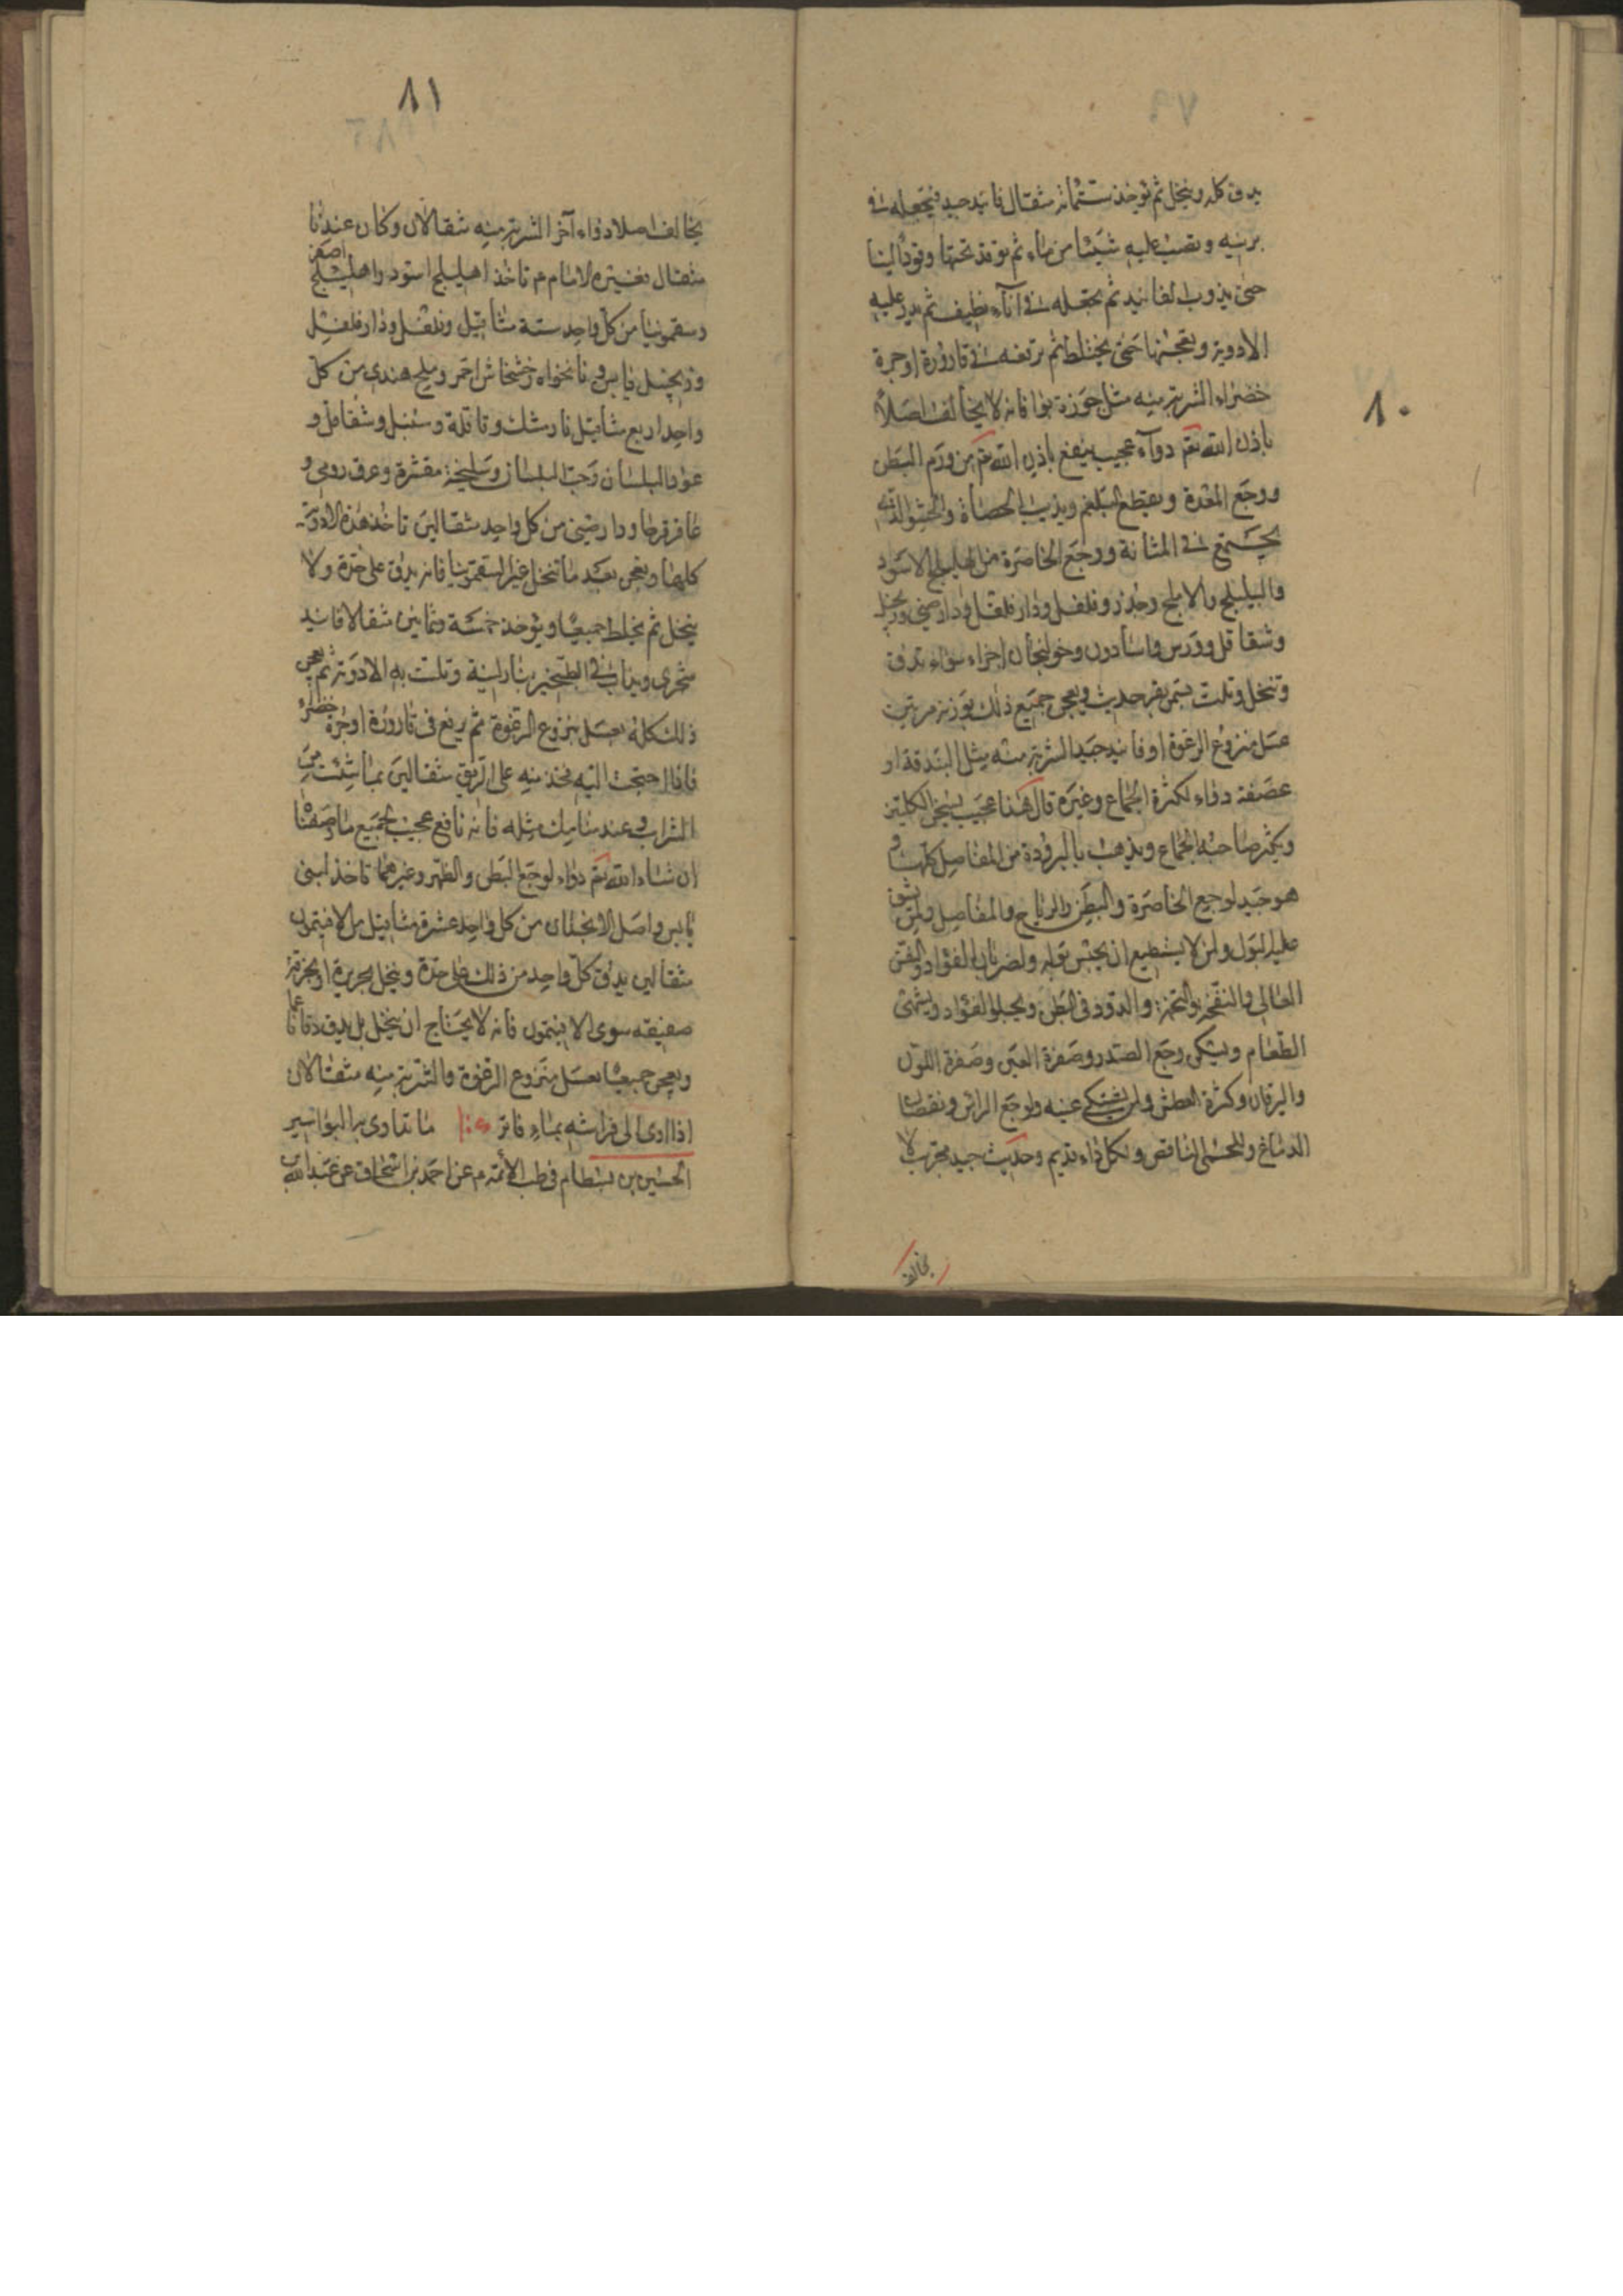 ٨٠
يدق كله وينخل ثم تؤخذ ستمائة مثقال فانيذ جيد فتجعله في
برنية وتصب عليه شيئا من ماء ثم توقد تحتها وقودا لينا
حتى يذوب الفانيذ ثم تجعله في اناء نظيف ثم يذر عليه
الادوية وتعجنها حتى يختلط ثم ترفعه في قارورة او جرة
خضراء الشربة منه مثل جوزة فانه لا يخالف اصلا
باذن الله تعم دواء عجيب ينفع باذن الله تعم من ورم البطن
ووجع المعدة ويقطع البلغم ويذيب الحصاة والحشو الذي
يجتمع في المثانة ووجع الخاصرة من الهليلج الاسود
والبليلج والاملج وفلفل ودارفلفل ودارصيني وزنجبيل
وشقاقل وورس واسارون وخولنجان اجزاء سواء تدق
وتنخل وتلت بسمن بقر حديث ويعجن جميع ذلك بوزنه مرتين
عسل منزوع الرغوة او فانيذ جيد الشربة منه مثل البندقة او
عفصة دواء لكثرة الجماع وغيره قال هذا عجيب يسخن الكليتين
ويكثر صاحبه الجماع ويذهب بالبرودة من المفاصل كلها و
هو جيد لوجع الخاصرة والبطن والرياح والمفاصل ولمن يشق
عليه البول ولمن لا يستطيع ان يحبس بوله ولضربان الفؤاد والنفس
العالي والنفخة والتخمة والدود في البطن ويجلو الفؤاد ويشهي
الطعام ويسكن وجع الصدر وصفرة العين وصفرة اللون
واليرقان وكثرة العطش ولمن يشتكي عينه ولوجع الراس ونقصان
الدماغ وللحمى النافض ولكل داء قديم وحديث جيد مجرب لا
يخالف
٨١
يخالف اصلا دواء آخر الشربة منه مثقالان وكان عندنا
مثقال فغيره الامام م تأخذ اهليلج اسود واهليلج اصفر
وسقمونيا من كل واحد ستة مثاقيل وفلفل ودارفلفل
وزنجبيل يابس ونانخواه وخشخاش احمر وملح هندي من كل
واحد اربع مثاقيل نارمشك وقاقلة وسنبل وشقاقل و
عود البلسان وحب البلسان وسليخة مقشرة وعرق رومي و
عاقرقرحا ودارصيني من كل واحد مثقالين تأخذ هذه الادوية
كلها ويعجن بعد ما تنخل غير السقمونيا فانه يدق على حدة ولا
ينخل ثم يخلط جميعا ويؤخذ خمسة وثمانين مثقالا فانيذ
سجزي ويذاب في الطنجير بنار لينة وتلت به الادوية ثم يعجن
ذلك كله بعسل منزوع الرغوة ثم يرفع في قارورة او جرة خضراء
فاذا احتجت اليه فخذ منه على الريق مثقالين بما شئت من
الشراب وعند منامك مثله فانه نافع عجيب لجميع ما وصفنا
ان شاء الله تعم دواء لوجع البطن والظهر وغيرهما تأخذ لبنى
يابس واصل الانجدان من كل واحد عشرة مثاقيل من الافتيمون
مثقالين يدق كل واحد من ذلك على حدة وينخل بحريرة او بخرقة
صفيقه سوى الافيتمون فانه لا يحتاج ان ينخل بل يدق دقا ناعما
ويعجن جميعا بعسل منزوع الرغوة والشربة منه مثقالان
اذا اوى الى فراشه بماء فاتر ما تداوى به البواسير
الحسين بن بسطام في طب الائمة م عن احمد بن اسحاق عن عبد الله بن